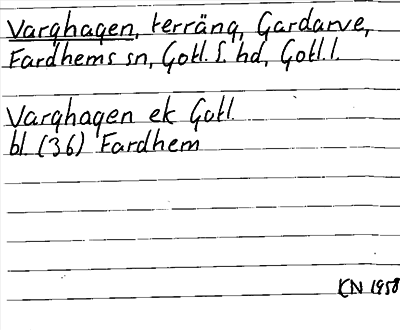 Varghagen, terräng, Gardarve,
Fardhems sn, Gotl. S. hd, Gotl. l.
Varghagen ek Gotl.
bl (36) Fardhem
KN 1958